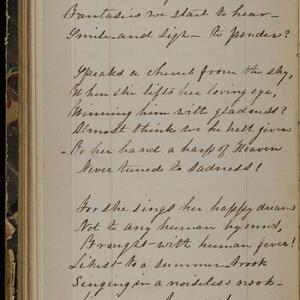 Fantasies we start to hear—
Smile—and sigh—to ponder?
Speaks a cherub from the sky,
When she lifts her loving eye,
Winning him with gladness?
Almost think we he hath given
To her hand a harp of Heaven
Never tuned to sadness!
For she sings her happy dreams
Not to any human hymns,
Brought with human fever!
Likest to a summer-brook
Singing in a noiseless nook—